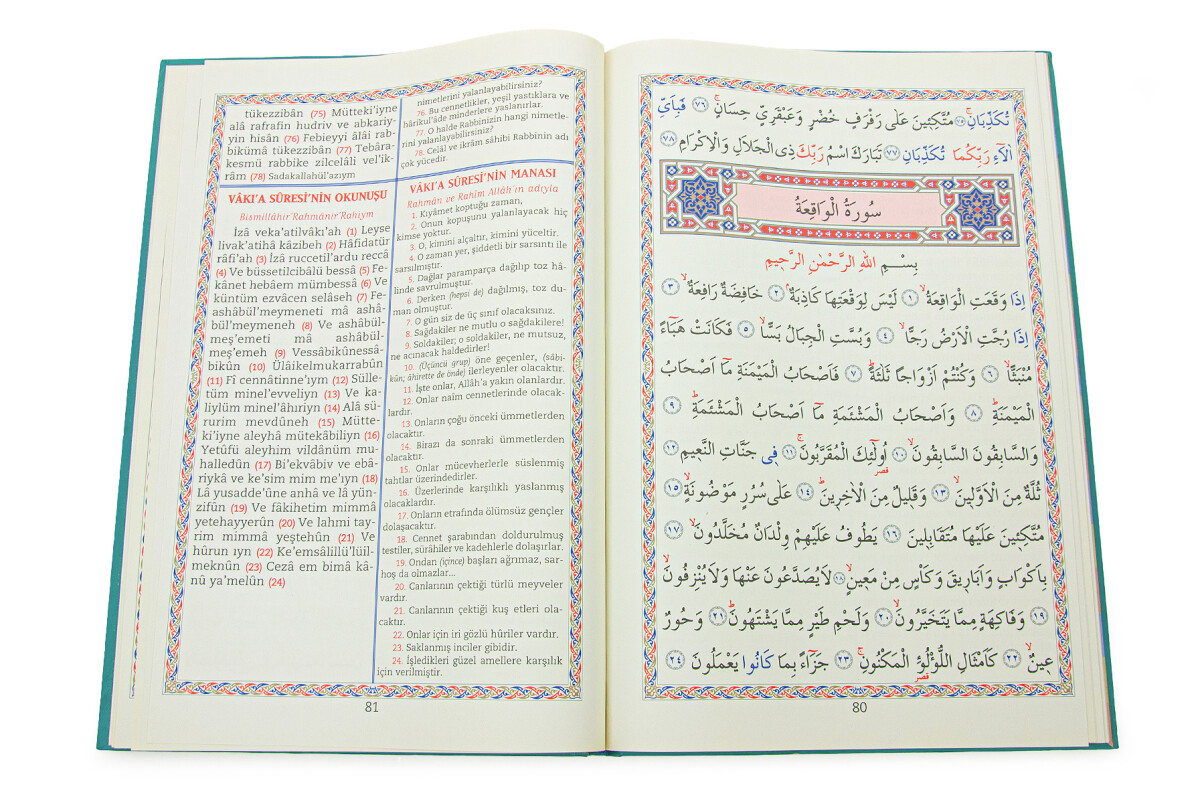 تُكَذِّبَانِۚ ﴿٧٥﴾ مُتَّكِـ۪ٔينَ عَلٰى رَفْرَفٍ خُضْرٍ وَعَبْقَرِيٍّ حِسَانٍۚ ﴿٧٦﴾ فَبِاَيِّ
اٰلَٓاءِ رَبِّكُمَا تُكَذِّبَانِ ﴿٧٧﴾ تَبَارَكَ اسْمُ رَبِّكَ ذِي الْجَلَالِ وَالْاِكْرَامِ ﴿٧٨﴾
سُورَةُ الْوَاقِعَةُ
بِسْــمِ اللّٰهِ الرَّحْمٰنِ الرَّح۪يمِ
اِذَا وَقَعَتِ الْوَاقِعَةُۙ ﴿١﴾ لَيْسَ لِوَقْعَتِهَا كَاذِبَةٌۢ ﴿٢﴾ خَافِضَةٌ رَافِعَةٌۙ ﴿٣﴾
اِذَا رُجَّتِ الْاَرْضُ رَجًّاۙ ﴿٤﴾ وَبُسَّتِ الْجِبَالُ بَسًّاۙ ﴿٥﴾ فَكَانَتْ هَبَٓاءً
مُنْبَثًّاۙ ﴿٦﴾ وَكُنْتُمْ اَزْوَاجًا ثَلٰثَةًۜ ﴿٧﴾ فَاَصْحَابُ الْمَيْمَنَةِ مَٓا اَصْحَابُ
الْمَيْمَنَةِۜ ﴿٨﴾ وَاَصْحَابُ الْمَشْـَٔمَةِ مَٓا اَصْحَابُ الْمَشْـَٔمَةِۜ ﴿٩﴾
وَالسَّابِقُونَ السَّابِقُونَۙ ﴿١٠﴾ اُو۬لٰٓئِكَ الْمُقَرَّبُونَۚ ﴿١١﴾ ف۪ي جَنَّاتِ النَّع۪يمِ ﴿١٢﴾
ثُلَّةٌ مِنَ الْاَوَّل۪ينَۙ ﴿١٣﴾ وَقَل۪يلٌ مِنَ الْاٰخِر۪ينَۜ ﴿١٤﴾ عَلٰى سُرُرٍ مَوْضُونَةٍۙ ﴿١٥﴾
مُتَّكِـ۪ٔينَ عَلَيْهَا مُتَقَابِل۪ينَ ﴿١٦﴾ يَطُوفُ عَلَيْهِمْ وِلْدَانٌ مُخَلَّدُونَۙ ﴿١٧﴾
بِاَكْوَابٍ وَاَبَار۪يقَ وَكَأْسٍ مِنْ مَع۪ينٍۙ ﴿١٨﴾ لَا يُصَدَّعُونَ عَنْهَا وَلَا يُنْزِفُونَۙ
﴿١٩﴾ وَفَاكِهَةٍ مِمَّا يَتَخَيَّرُونَۙ ﴿٢٠﴾ وَلَحْمِ طَيْرٍ مِمَّا يَشْتَهُونَۜ ﴿٢١﴾ وَحُورٌ
ع۪ينٌۙ ﴿٢٢﴾ كَاَمْثَالِ اللُّؤْلُؤِ الْمَكْنُونِۚ ﴿٢٣﴾ جَزَٓاءً بِمَا كَانُوا يَعْمَلُونَ ﴿٢٤﴾
80
tükezzibân (75) Mütteki'iyne
alâ rafrafin hudriv ve abkariy-
yin hisân (76) Febieyyi âlâi rab-
bikümâ tükezzibân (77) Tebâra-
kesmü rabbike zilcelâli vel'ik-
râm (78) Sadakallahül'azıym
VÂKI'A SÛRESİ'NİN OKUNUŞU
Bismillâhir'Rahmânir'Rahıym
İzâ veka'atilvâkı'ah (1) Leyse
livak'atihâ kâzibeh (2) Hâfidatür
râfi'ah (3) İzâ ruccetil'ardu reccâ
(4) Ve büssetilcibâlü bessâ (5) Fe-
kânet hebâem mümbessâ (6) Ve
küntüm ezvâcen selâseh (7) Fe-
ashâbül'meymeneti mâ ashâ-
bül'meymeneh (8) Ve ashâbül-
meş'emeti mâ ashâbül-
meş'emeh (9) Vessâbikûnessâ-
bikûn (10) Ülâikelmukarrabûn
(11) Fî cennâtinne'ıym (12) Sülle-
tüm minel'evveliyn (13) Ve ka-
liylüm minel'âhıriyn (14) Alâ sü-
rurim mevdûneh (15) Mütte-
ki'iyne aleyhâ mütekâbiliyn (16)
Yetûfü aleyhim vildânüm mu-
halledûn (17) Bi'ekvâbiv ve ebâ-
riykâ ve ke'sim mim me'ıyn (18)
Lâ yusadde'ûne anhâ ve lâ yün-
zifûn (19) Ve fâkihetim mimmâ
yetehayyerûn (20) Ve lahmi tay-
rim mimmâ yeştehûn (21) Ve
hûrun ıyn (22) Ke'emsâlillü'lüil-
meknûn (23) Cezâ em bimâ kâ-
nû ya'melûn (24)
nimetlerini yalanlayabilirsiniz?
76. Bu cennetlikler, yeşil yastıklara ve
hârikul'âde minderlere yaslanırlar.
77. O halde Rabbinizin hangi nimetle-
rini yalanlayabilirsiniz?
78. Celâl ve ikrâm sâhibi Rabbinin adı
çok yücedir.
VÂKI'A SÛRESİ'NİN MANASI
Rahmân ve Rahîm Allâh'ın adıyla
1. Kıyâmet koptuğu zaman,
2. Onun kopuşunu yalanlayacak hiç
kimse yoktur.
3. O, kimini alçaltır, kimini yüceltir.
4. O zaman yer, şiddetli bir sarsıntı ile
sarsılmıştır.
5. Dağlar paramparça dağılıp toz hâ-
linde savrulmuştur.
6. Derken (hepsi de) dağılmış, toz du-
man olmuştur.
7. O gün siz de üç sınıf olacaksınız.
8. Sağdakiler ne mutlu o sağdakilere!
9. Soldakiler; o soldakiler, ne mutsuz,
ne acınacak haldedirler!
10. (Üçüncü grup) öne geçenler, (sâbi-
kûn; âhirette de önde) ilerleyenler olacaktır.
11. İşte onlar, Allâh'a yakın olanlardır.
12. Onlar naîm cennetlerinde olacak-
lardır.
13. Onların çoğu önceki ümmetlerden
olacaktır.
14. Birazı da sonraki ümmetlerden
olacaktır.
15. Onlar mücevherlerle süslenmiş
tahtlar üzerindedirler.
16. Üzerlerinde karşılıklı yaslanmış
olacaklardır.
17. Onların etrafında ölümsüz gençler
dolaşacaktır.
18. Cennet şarabından doldurulmuş
testiler, sürâhiler ve kadehlerle dolaşırlar.
19. Ondan (içince) başları ağrımaz, sar-
hoş da olmazlar...
20. Canlarının çektiği türlü meyveler
vardır.
21. Canlarının çektiği kuş etleri ola-
caktır.
22. Onlar için iri gözlü hûriler vardır.
23. Saklanmış inciler gibidir.
24. İşledikleri güzel amellere karşılık
için verilmiştir.
81